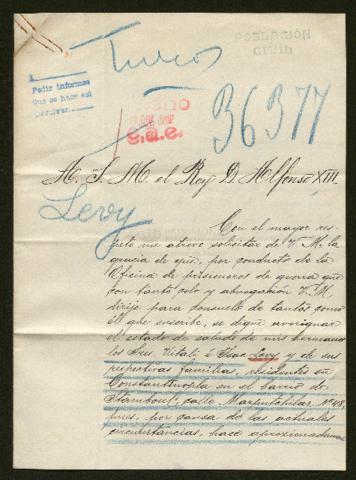 Turcos
POBLACIÓN
CIVIL
Pedir informes
que se hace así
36377
c.a.e.
A. S. M. el Rey D. Alfonso XIII.
Levy
Con el mayor res-
peto me atrevo solicitar de V. M. la
gracia de que, por conducto de la
Oficina de prisioneros de guerra que
con tanto celo y abnegación V. M.
dirije para consuelo de tantos como
él que suscribe, se digne averiguar
el estado de salud de mis hermanos
los Sres. Vitali é Isac Levy y de sus
respectivas familias, residentes en
Constantinopla en el barrio de
Stamboul, calle Nº 48,
pues, por causa de las actuales
circunstancias, hace aproximadamen-